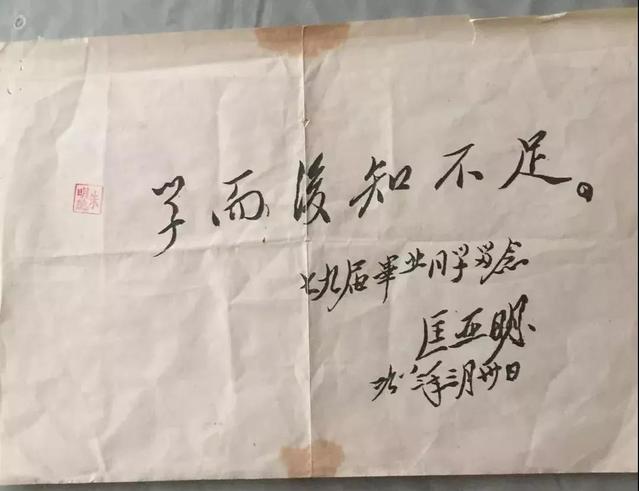 学而後知不足。
七九届畢业同学留念
匡亚明
年三月卅日
朱
明